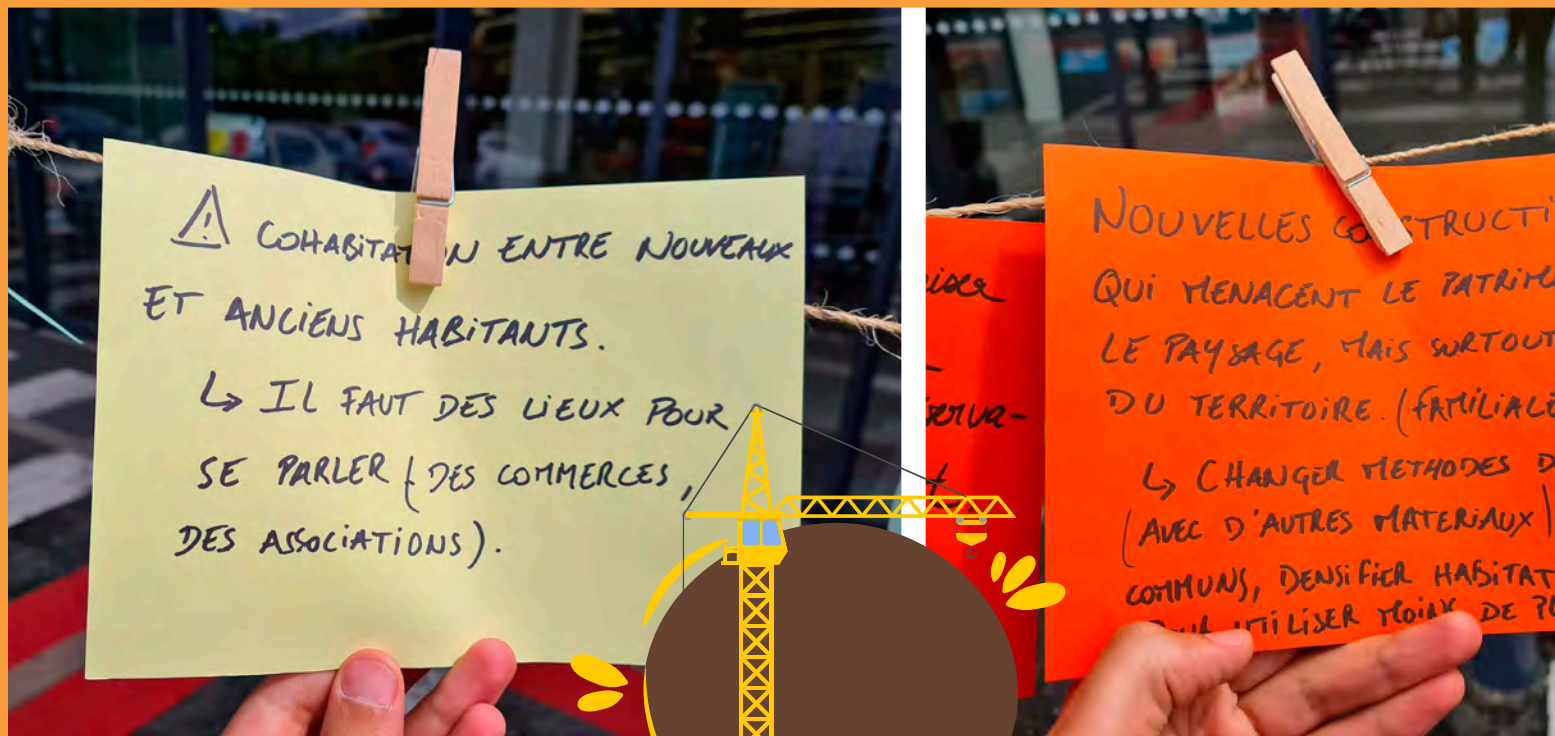 ⚠ COHABITATION ENTRE NOUVEAUX
ET ANCIENS HABITANTS.
↳ IL FAUT DES LIEUX POUR
SE PARLER (DES COMMERCES,
DES ASSOCIATIONS).
NOUVELLES CONSTRUCTI
QUI MENACENT LE PATRIMO
LE PAYSAGE, MAIS SURTOUT
DU TERRITOIRE. (FAMILIALE
↳ CHANGER METHODES D
(AVEC D'AUTRES MATERIAUX)
COMMUNS, DENSIFIER HABITAT
POUR UTILISER MOINS DE